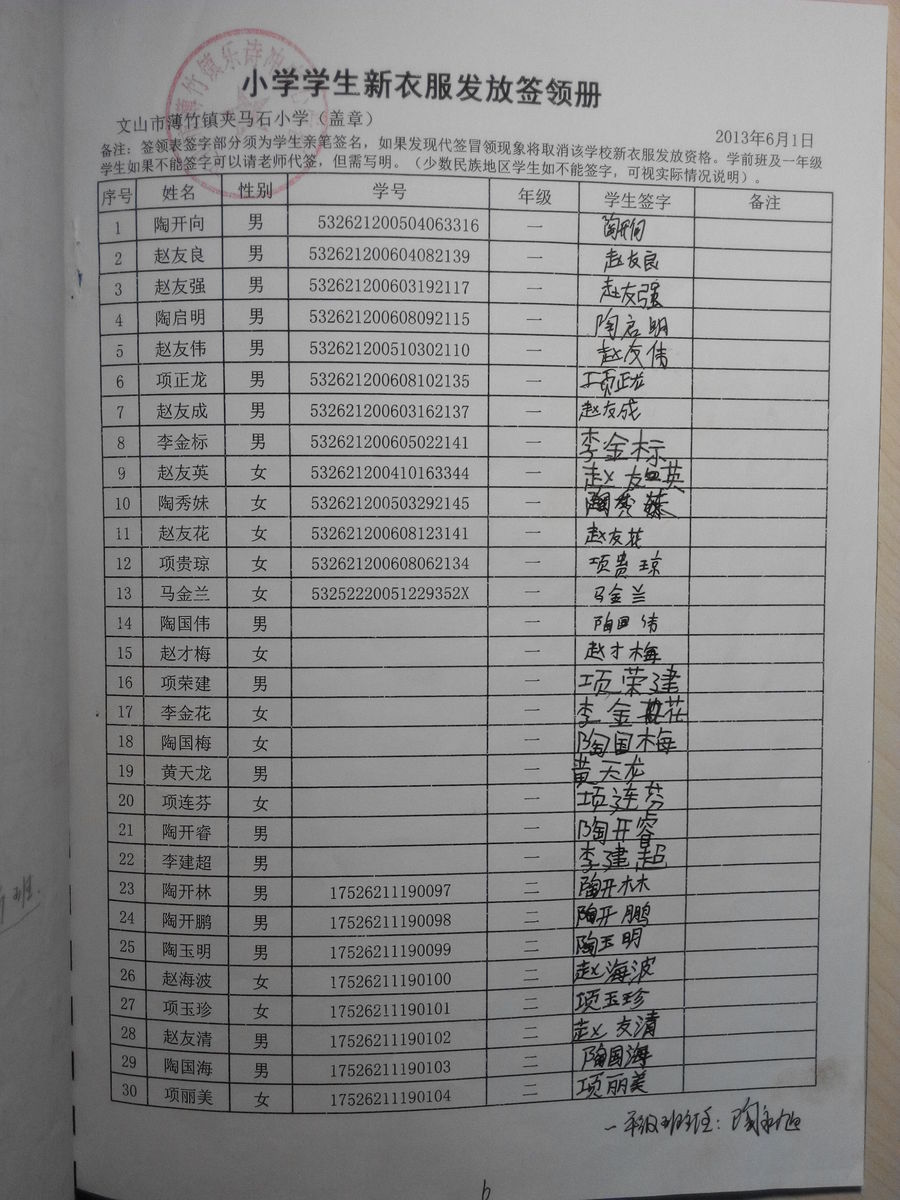 薄竹镇乐诗冲
小学学生新衣服发放签领册
文山市薄竹镇夹马石小学（盖章）
2013年6月1日
备注：签领表签字部分须为学生亲笔签名，如果发现代签冒领现象将取消该学校新衣服发放资格。学前班及一年级
学生如果不能签字可以请老师代签，但需写明。（少数民族地区学生如不能签字，可视实际情况说明）。
序号 姓名 性别 学号 年级 学生签字 备注
1 陶开向 男 532621200504063316 一 陶开向
2 赵友良 男 532621200604082139 一 赵友良
3 赵友强 男 532621200603192117 一 赵友强
4 陶启明 男 532621200608092115 一 陶启明
5 赵友伟 男 532621200510302110 一 赵友伟
6 项正龙 男 532621200608102135 一 项正龙
7 赵友成 男 532621200603162137 一 赵友成
8 李金标 男 532621200605022141 一 李金标
9 赵友英 女 532621200410163344 一 赵友英
10 陶秀妹 女 532621200503292145 一 陶秀妹
11 赵友花 女 532621200608123141 一 赵友花
12 项贵琼 女 532621200608062134 一 项贵琼
13 马金兰 女 53252220051229352X 一 马金兰
14 陶国伟 男 一 陶国伟
15 赵才梅 女 一 赵才梅
16 项荣建 男 一 项荣建
17 李金花 女 一 李金花
18 陶国梅 女 一 陶国梅
19 黄天龙 男 一 黄天龙
20 项连芬 女 一 项连芬
21 陶开睿 男 一 陶开睿
22 李建超 男 一 李建超
23 陶开林 男 17526211190097 二 陶开林
24 陶开鹏 男 17526211190098 二 陶开鹏
25 陶玉明 男 17526211190099 二 陶玉明
26 赵海波 女 17526211190100 二 赵海波
27 项玉珍 女 17526211190101 二 项玉珍
28 赵友清 男 17526211190102 二 赵友清
29 陶国海 男 17526211190103 二 陶国海
30 项丽美 女 17526211190104 二 项丽美
一年级班主任：陶永旭
班.
6